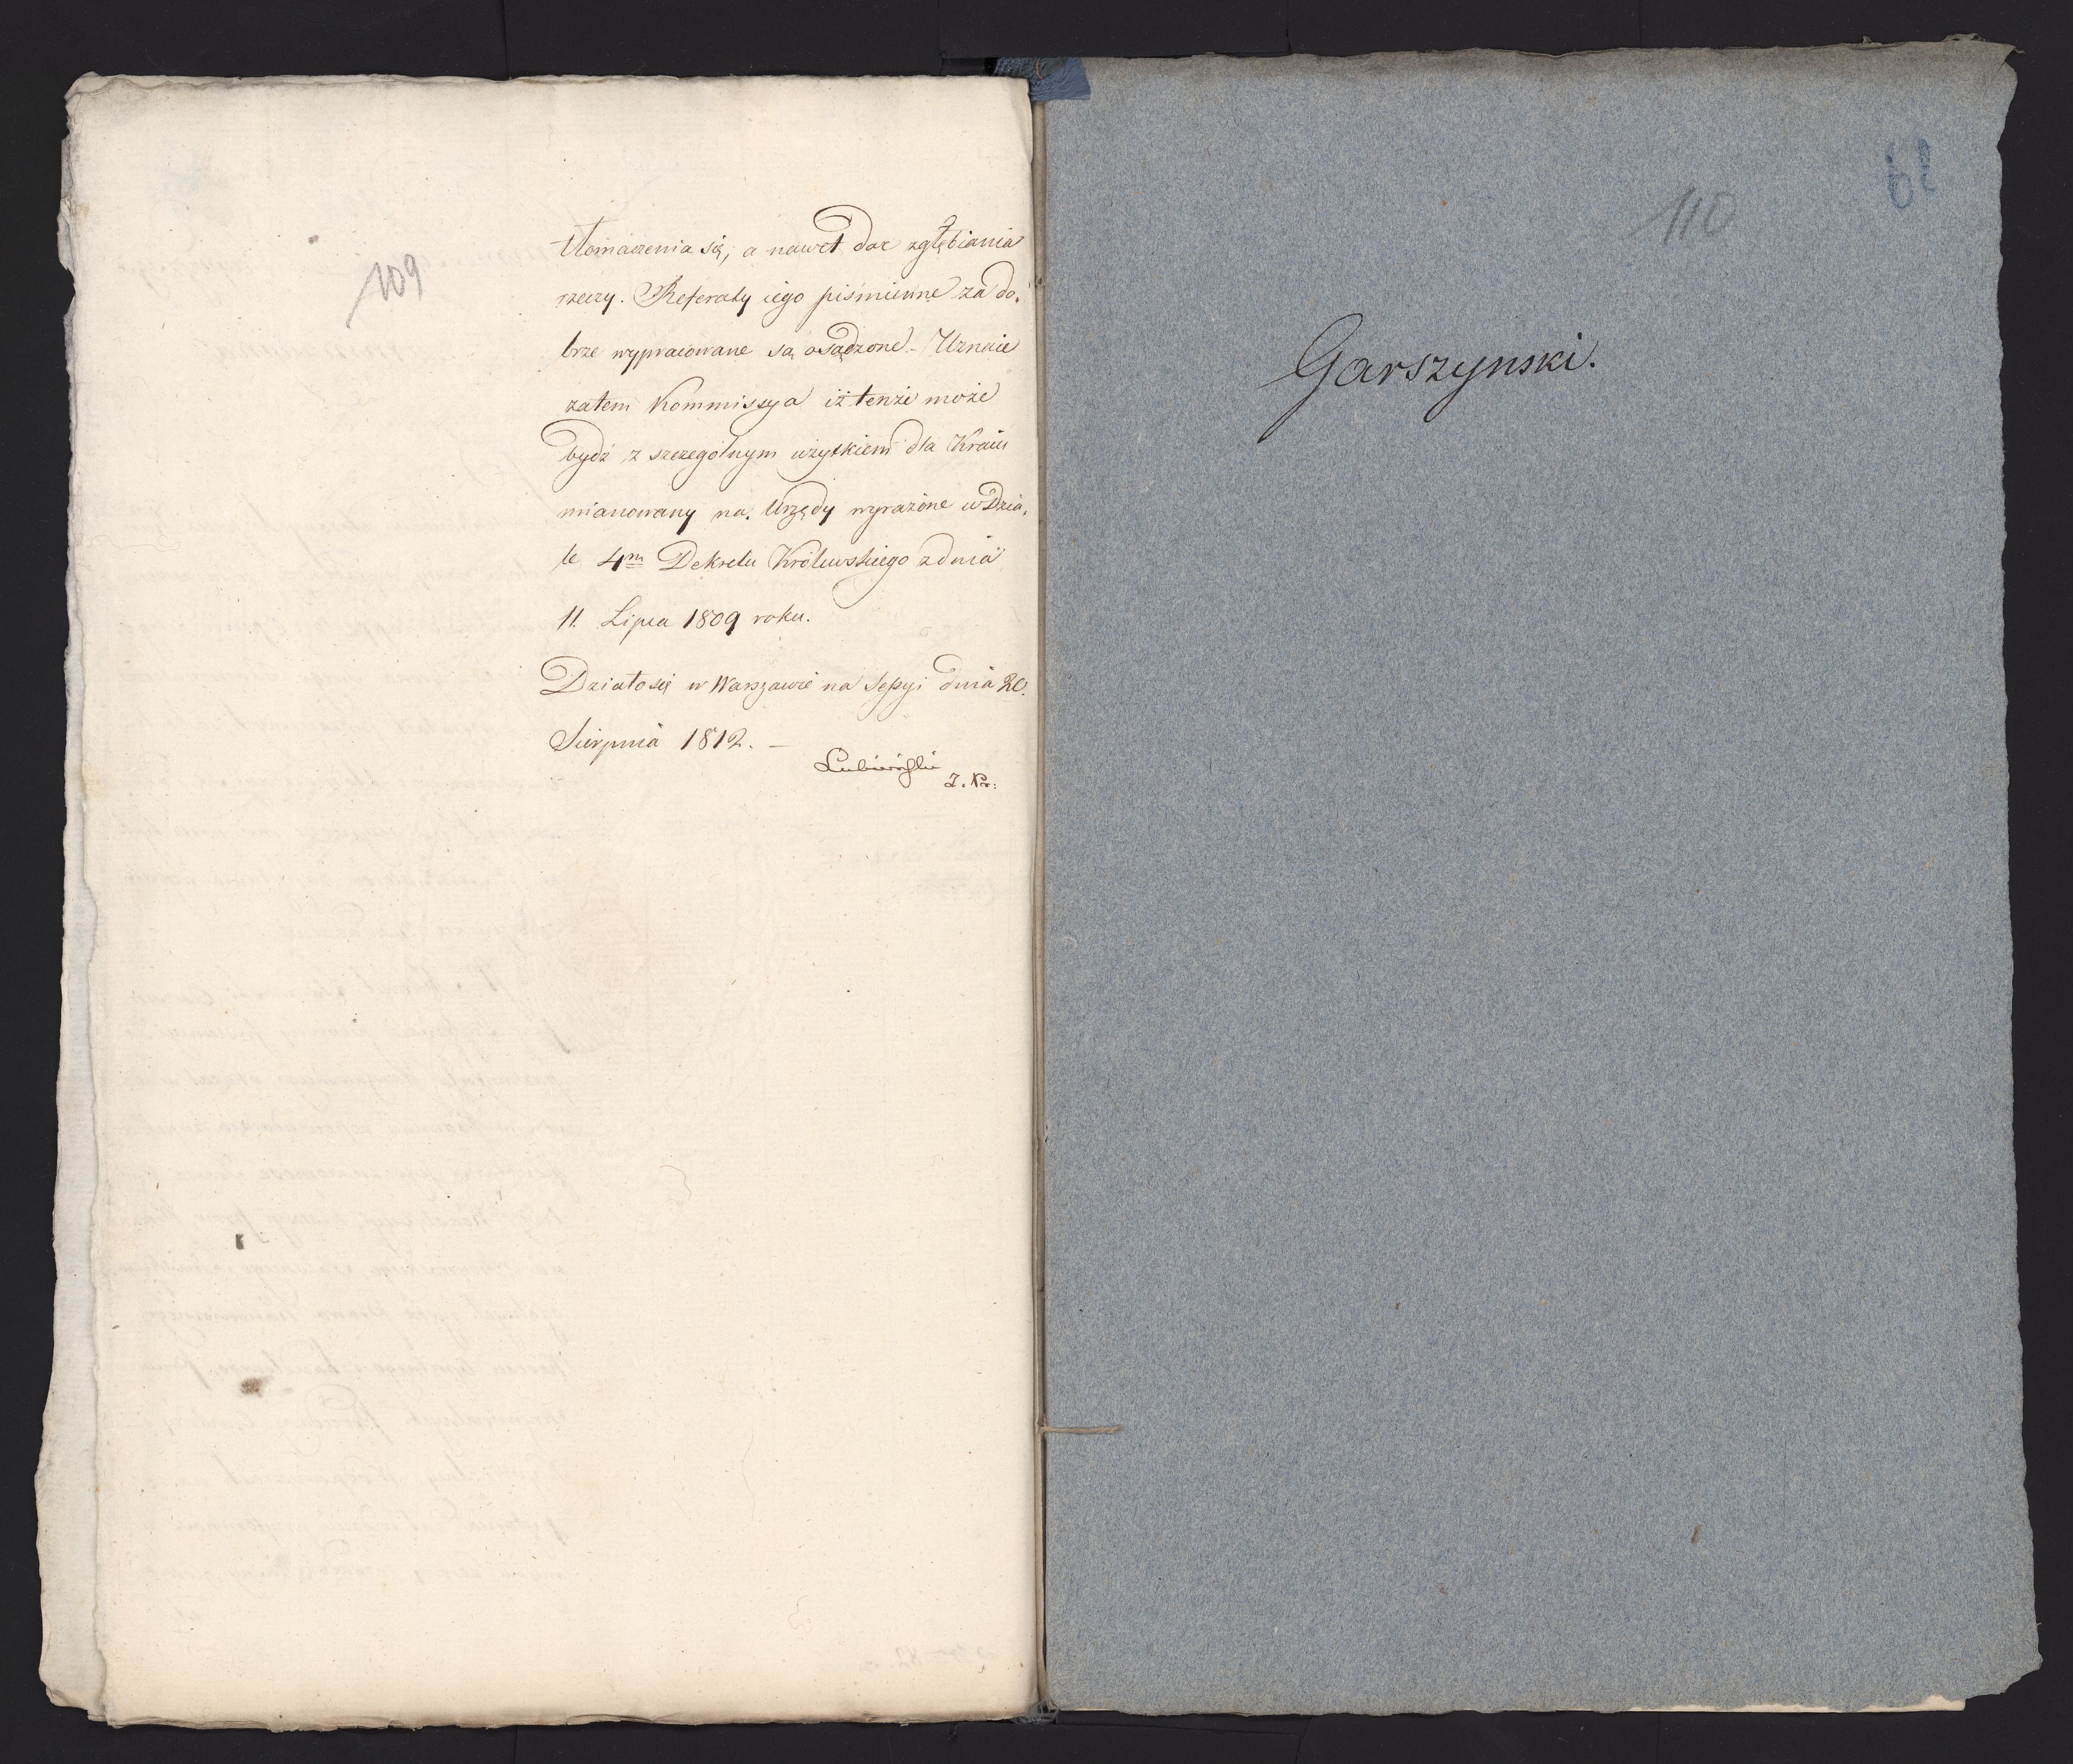 109
tłomaczenia się, a nawet dar zgłębiania
rzeczy. Referaty iego piśmienne za do,
brze wypracowane są osądzone. – Uznaie
zatem Kommissya iż tenże może
bydź z szczegolnym użytkiem dla Kraiu
mianowany na Urzędy wyrażone w Dzia,
le 4m Dekretu Królewskiego z dnia
11. Lipca 1809 roku.
Działo się w Warszawie na Sessyi dnia
Sierpnia 1812. –
Lubieński
110
19
Garszynski.